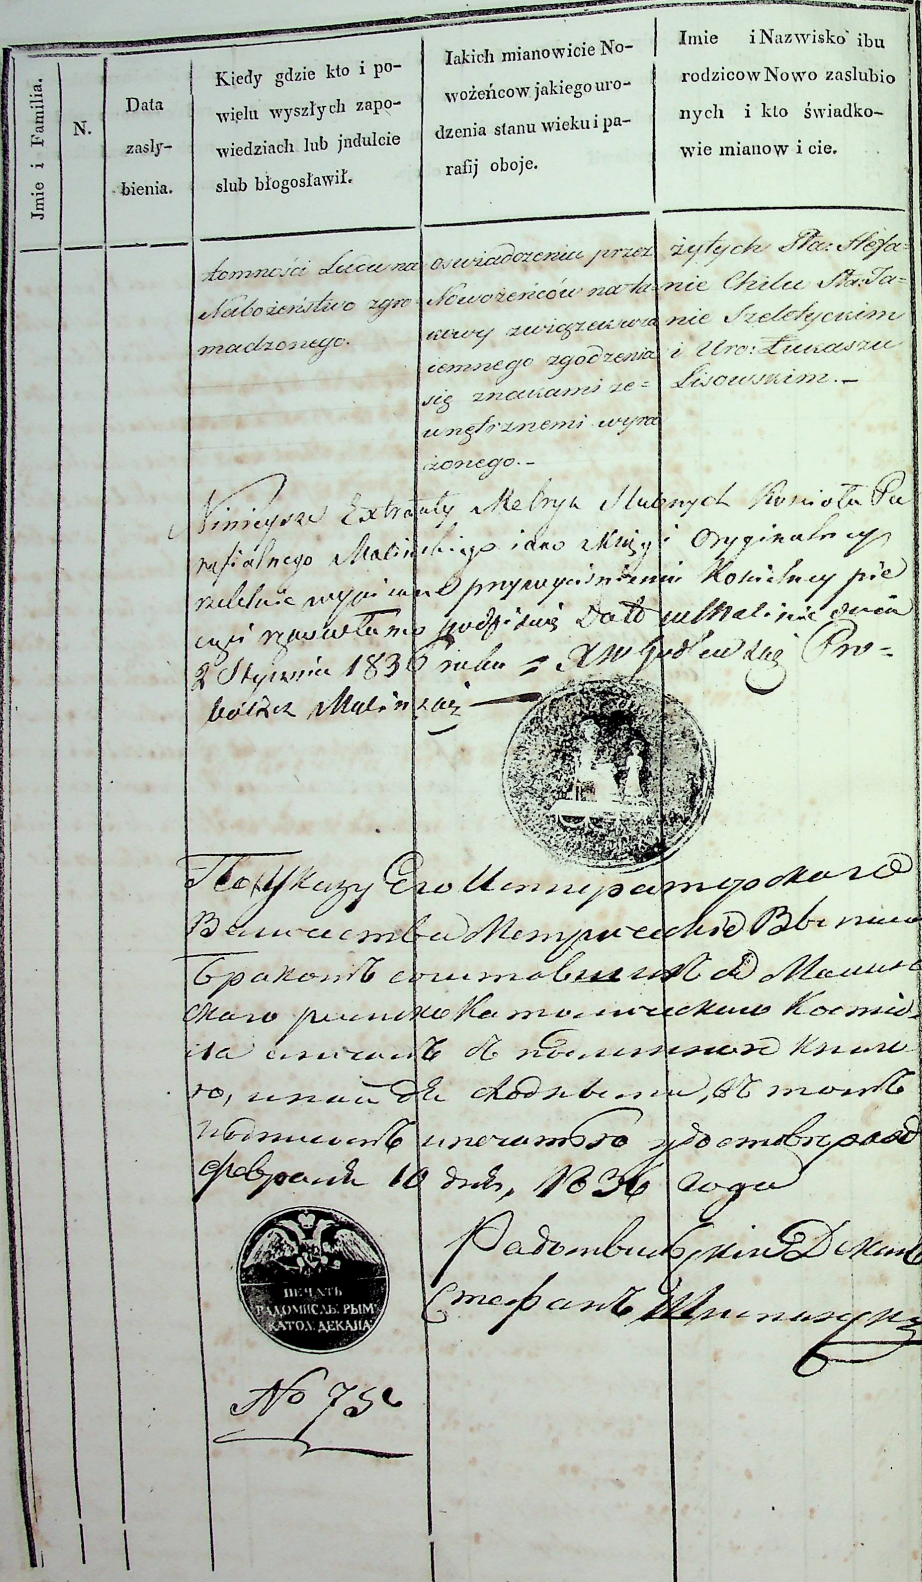 Jmie i Familia.
N.
Data
zasly-
bienia.
Kiedy gdzie kto i po-
wielu wyszłych zapo-
wiedziach lub jndulcie
slub błogosławił.
Iakich mianowicie No-
wożeńcow jakiego uro-
dzenia stanu wieku i pa-
rafij oboje.
Imie i Nazwisko ibu
rodzicow Nowo zaslubio
nych i kto świadko-
wie mianow i cie.
tomności Ludu na
Nabożeństwo zgro
madzonego.
oswiadczenia przez
Nowożeńców na ta-
kowy związek wza
iemnego zgodzenia
się znakami ze=
wnętrznemi wyra
żonego.-
żytych Sła: Stefa=
nie Chilu Sła: Ja=
nie Szeletyckim
i Uro: Łukaszu
Lisowskim.-
Ninieysze Extrakty Metryk Slubnych Kościoła Pa
rafialnego Malińskiego iako z Xięgi Oryginalney
rzetelnie wypisane przy wyciśnieniu Kościelney pie
częci własnoręcznie podpisuię Dato w Malinie dnia
2 Stycznia 1836 roku = X W Pro=
boszcz Malinski
По Указу Его Императорскаго
Величества Метрическiе Выписи
Бракомъ сочитавшихся Малин
скаго римско Католическаго Костiо
ла с подлинною книго
ю, и найдены сходными, въ томъ
подписомъ и печатью удостоверяю
февраля 10 дня, 1836 года
Радомысльскiй Деканъ
Стефанъ
ПЕЧАТЬ
РАДОМИСЛЬ: РЫМ:
КАТОЛ: ДЕКАНА
No 75